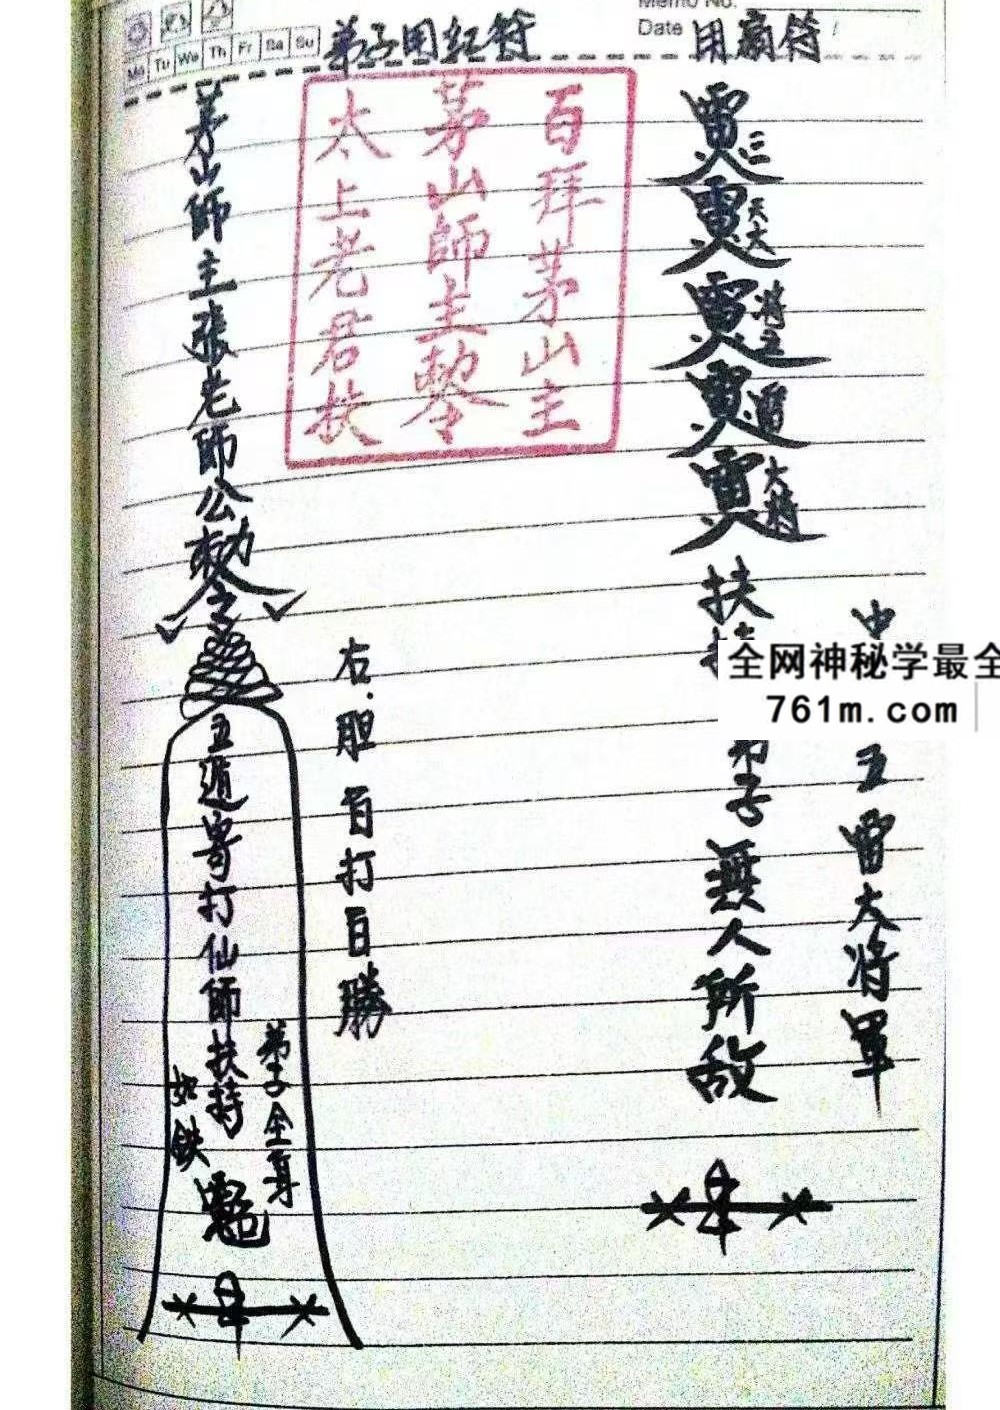 Memo No.
Date
Mo Tu We Th Fr Sa Su
弟子用紅符
用符
百拜茅山主
茅山師主
太上老君扶
茅山師主張老師公勅令
五遁寄打仙師扶持
弟子全身
如鉄
右.胆百打百勝
三
天大
将
大将
扶
弟子無人所敌
中
五雷大将軍
全网神秘学最全
761m.com